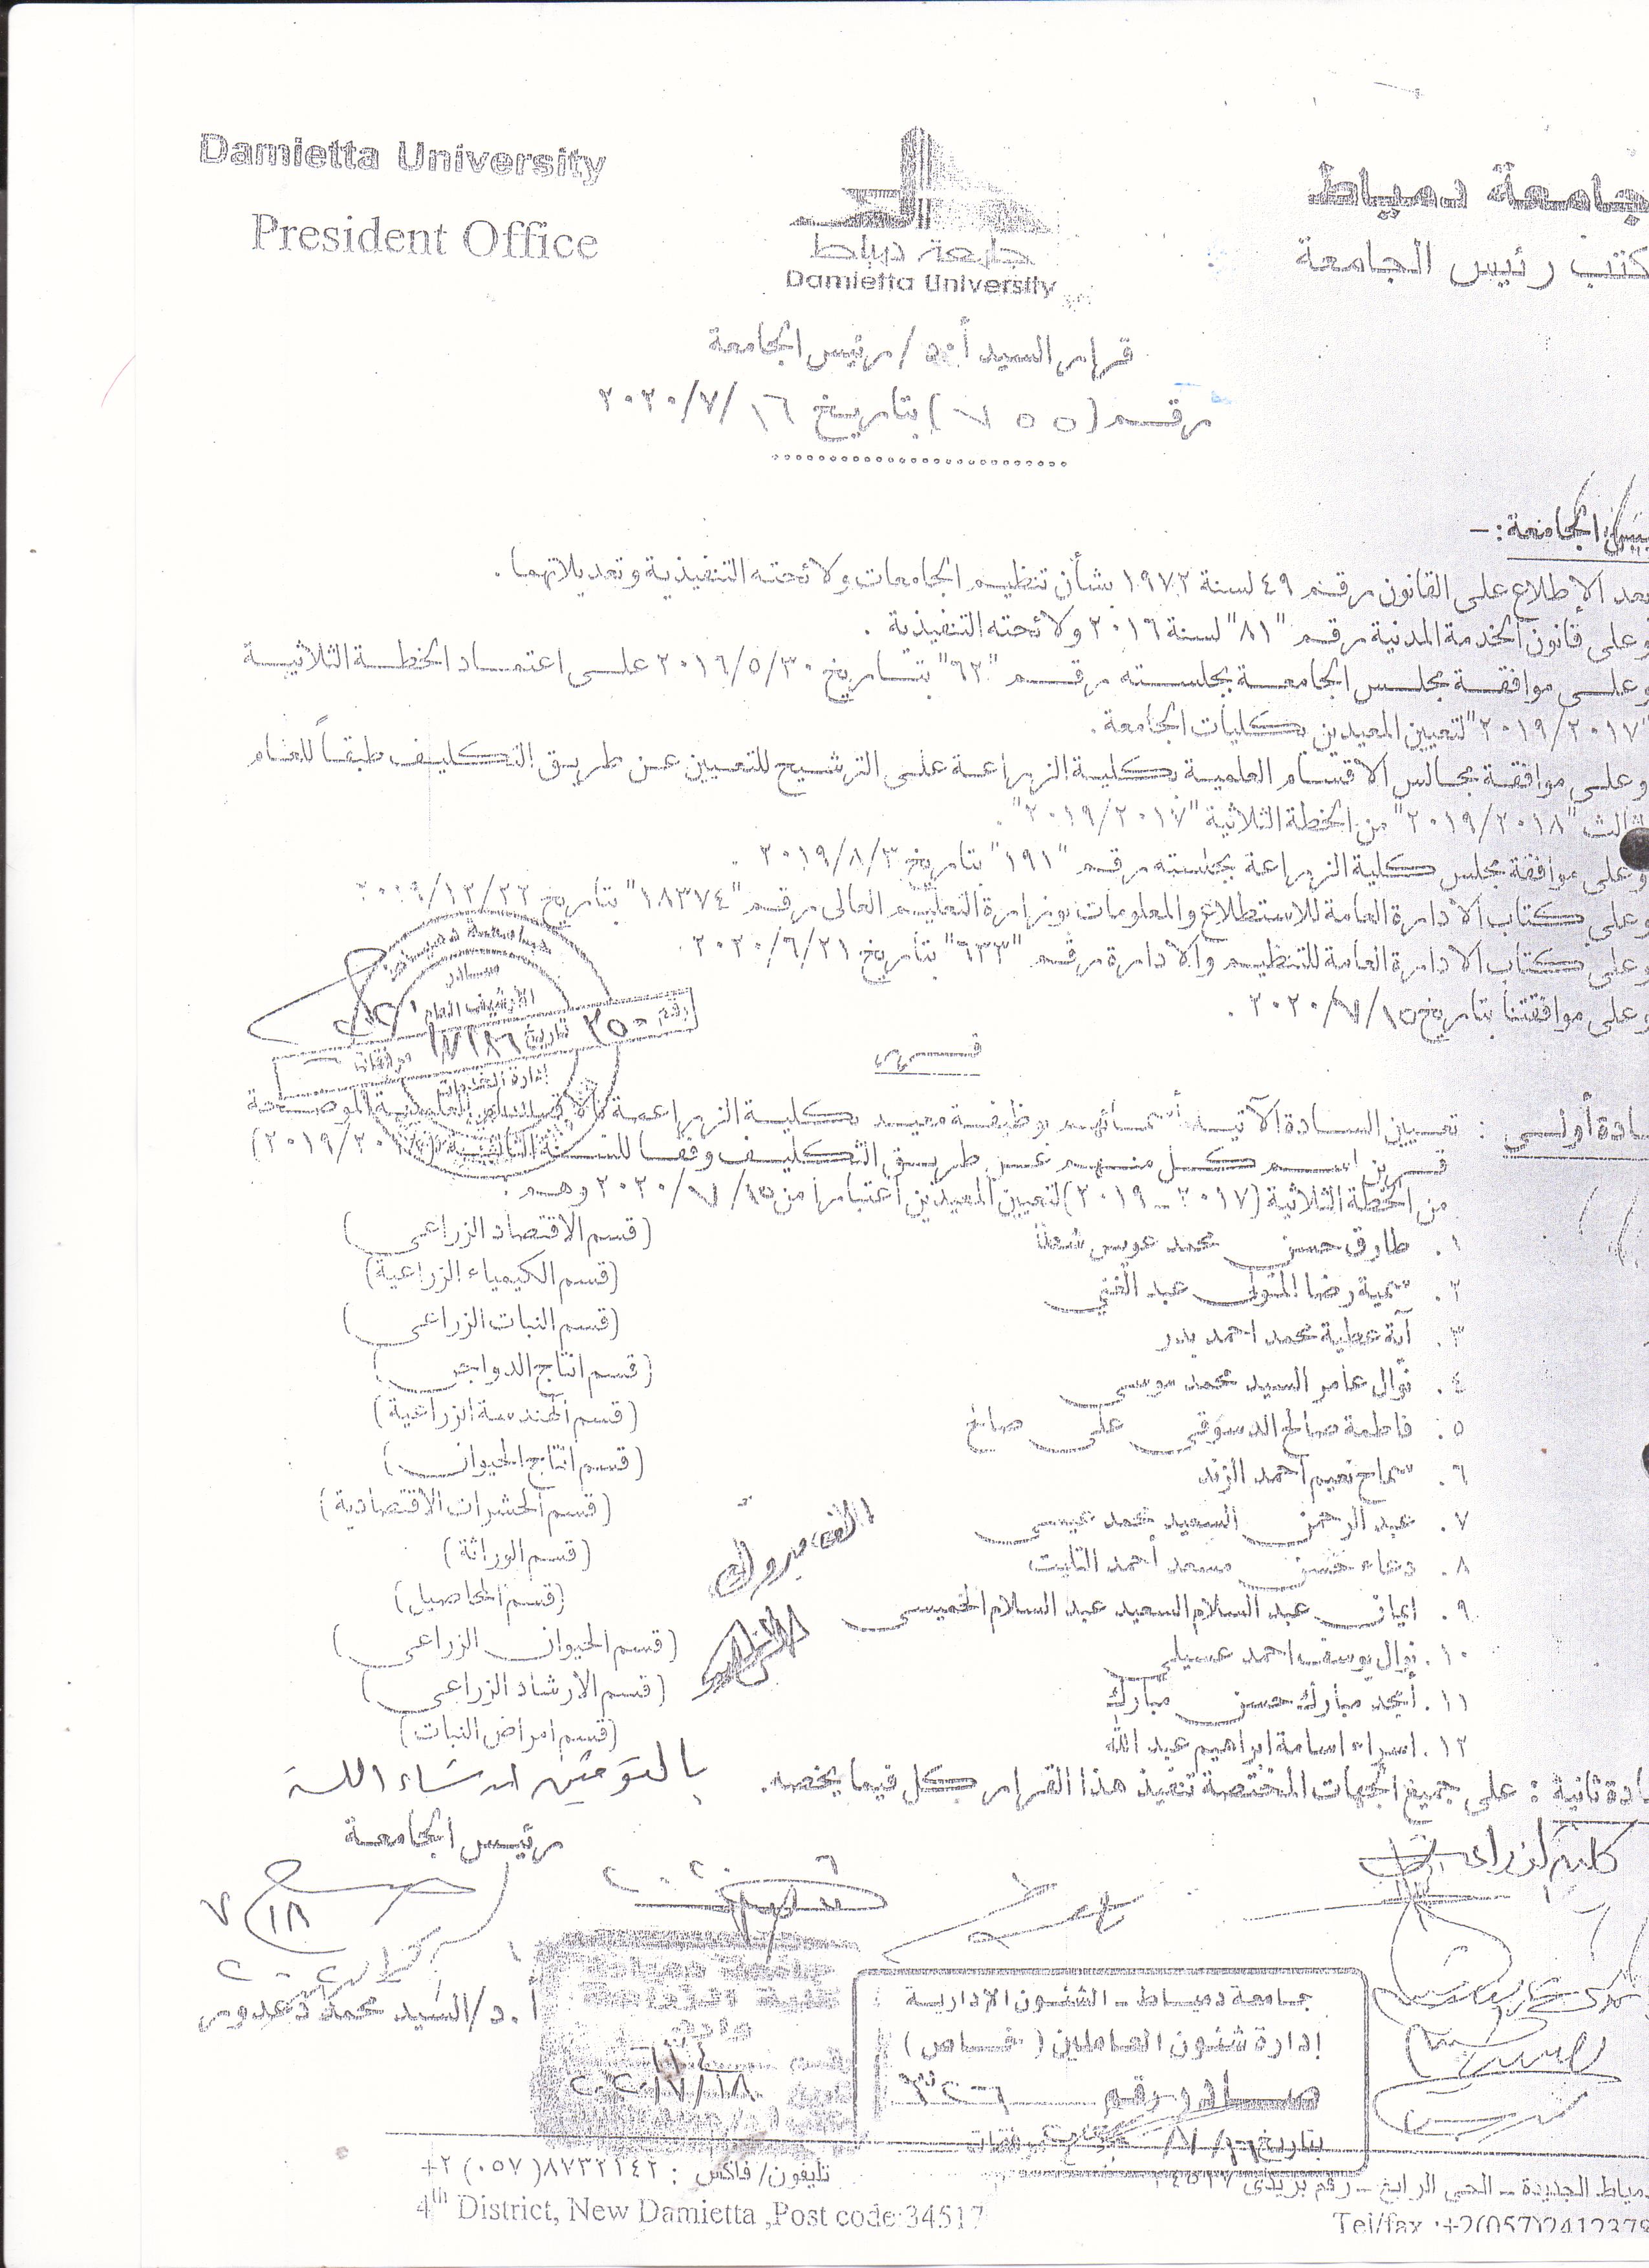 Damietta University
President Office
جامعة دمياط
Damietta University
جامعة دمياط
كتب رئيس الجامعة
قرار السيد أ.د / رئيس الجامعة
رقم ( ٧٥٥ ) بتاريخ ١٦ /٢٠٢٠/٧
رئيس الجامعة :-
بعد الإطلاع على القانون رقم ٤٩ لسنة ١٩٧٢ بشأن تنظيم الجامعات ولائحته التنفيذية وتعديلاتهما .
وعلى قانون الخدمة المدنية رقم "٨١" لسنة ٢٠١٦ ولائحته التنفيذية .
وعلى موافقة مجلس الجامعة بجلسته رقم "٦٢" بتاريخ ٢٠١٦/٥/٣٠ على اعتماد الخطة الثلاثية
٢٠١٩/٢٠١٧" لتعيين المعيدين بكليات الجامعة .
وعلى موافقة مجالس الاقسام العلمية بكلية الزراعة على الترشيح للتعيين عن طريق التكليف طبقاً للعام
الثالث "٢٠١٩/٢٠١٨" من الخطة الثلاثية "٢٠١٩/٢٠١٧" .
وعلى موافقة مجلس كلية الزراعة بجلسته رقم "١٩١" بتاريخ ٢٠١٩/٨/٣ .
وعلى كتاب الادارة العامة للاستطلاع والمعلومات بوزارة التعليم العالى رقم "١٨٣٧٤" بتاريخ ٢٠١٩/١٢/٢٢
وعلى كتاب الادارة العامة للتنظيم والادارة رقم "٦٣٣" بتاريخ ٢٠٢٠/٦/٢١ .
وعلى موافقتنا بتاريخ ٢٠٢٠/٧/١٥ .
الأرشيف العام
رقم ٢٥٠ تاريخ مرفقات
قرر
مادة أولى : تعيين السادة الآتية أسمائهم بوظيفة معيد بكلية الزراعة بالأقسام العلمية الموضحة
قرين اسم كل منهم عن طريق التكليف وفقا للسنة الثالثة (٢٠١٩/٢٠١٨)
من الخطة الثلاثية (٢٠١٧ - ٢٠١٩) لتعيين المعيدين اعتبارا من ٢٠٢٠/٧/١٥ وهم .
١. طارق حسن محمد عويس شعلة (قسم الاقتصاد الزراعى)
٢. سمية رضا المتولى عبد الغني (قسم الكيمياء الزراعية)
٣. آية عطية محمد احمد بدر (قسم النبات الزراعى)
٤. نوال عامر السيد محمد موسى (قسم انتاج الدواجن)
٥. فاطمة صالح الدسوقى على صايغ (قسم الهندسة الزراعية)
٦. سماح نعيم أحمد الزند (قسم انتاج الحيوان)
٧. عبد الرحمن السعيد محمد عيسى (قسم الحشرات الاقتصادية)
٨. دعاء حسن مسعد أحمد الثابت (قسم الوراثة)
٩. ايمان عبد السلام السعيد عبد السلام الخميسى (قسم المحاصيل)
١٠. نوال يوسف احمد عسيلى (قسم الحيوان الزراعى)
١١. أمجد مبارك حسن مبارك (قسم الارشاد الزراعى)
١٢. اسراء اسامة ابراهيم عبد الله (قسم امراض النبات)
الف مبروك
مادة ثانية : على جميع الجهات المختصة تنفيذ هذا القرار كل فيما يخصه .
بالتوفيق ان شاء الله
رئيس الجامعة
كلية الزراعة
١٨ ٧
أ.د/السيد محمد دعدور
جامعة دمياط
كلية الزراعة
٢٠٢٠/٧/١٨
جامعة دمياط - الشئون الإدارية
إدارة شئون العاملين ( خاص )
صادر رقم
بتاريخ
تليفون/ فاكس : ٨٧٣٢١٤٢(٠٥٧)٢+
4th District, New Damietta ,Post code:34517
دمياط الجديدة - الحى الرابع - رقم بريدى ٣٤٥١٧
Tel/fax :+2(057)2412379